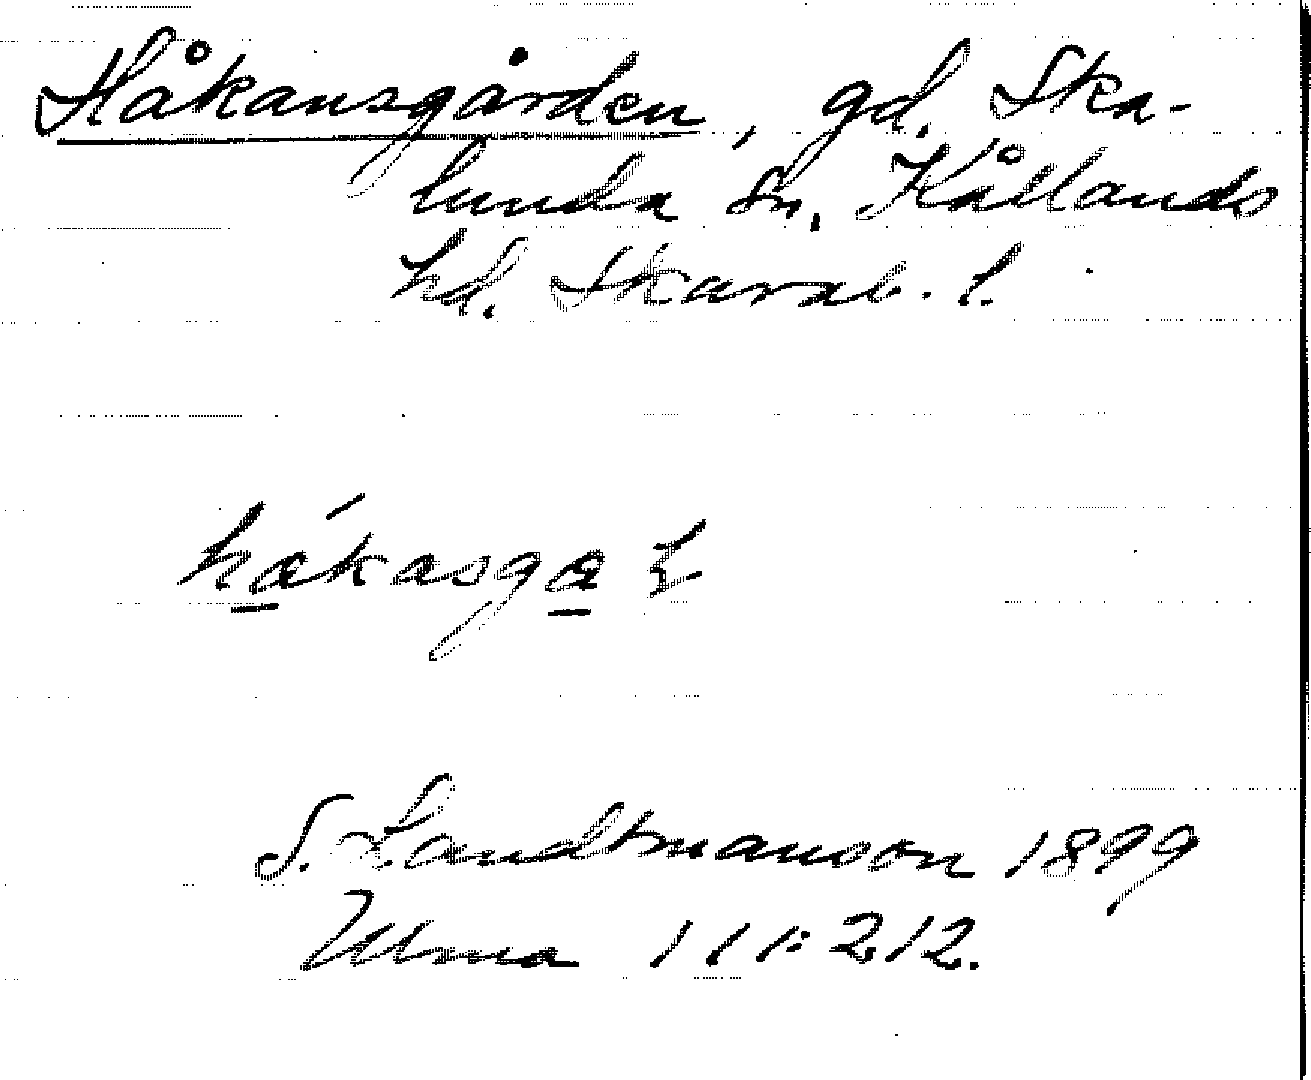 Håkansgården, gd. Ska-
lunda sn, Kållands
hd. Skarab. l.
hákasga
S. Landtmanson 1899
Ulma 111:212.